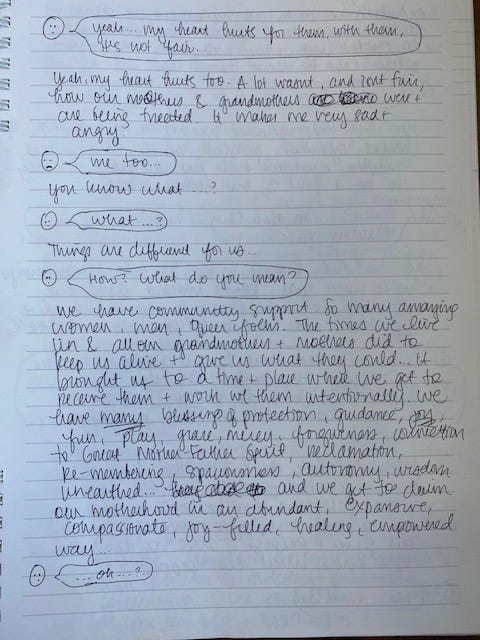 yeah... my heart hurts for them, with them,
it's not fair.
Yeah, my heart hurts too. A lot wasn't, and isn't fair,
how our mothers & grandmothers were +
are being treated. It makes me very sad +
angry.
me too...
you know what ....?
what ...?
Things are different for us...
How? What do you mean?
We have community support. So many amazing
women, men, queer folks. The times we live
in & all our grandmothers + mothers did to
keep us alive + give us what they could... it
brought us to a time + place where we get to
receive them + work w/ them intentionally. We
have many blessings of protection, guidance, joy,
fun, play, grace, mercy, forgiveness, connection
to Great Mother-Father Spirit, reclamation,
re-membering, spaciousness, autonomy, wisdom
unearthed... and we get to claim
our motherhood in an abundant, expansive,
compassionate, joy-filled, healing, empowered
way...
... oh ...?